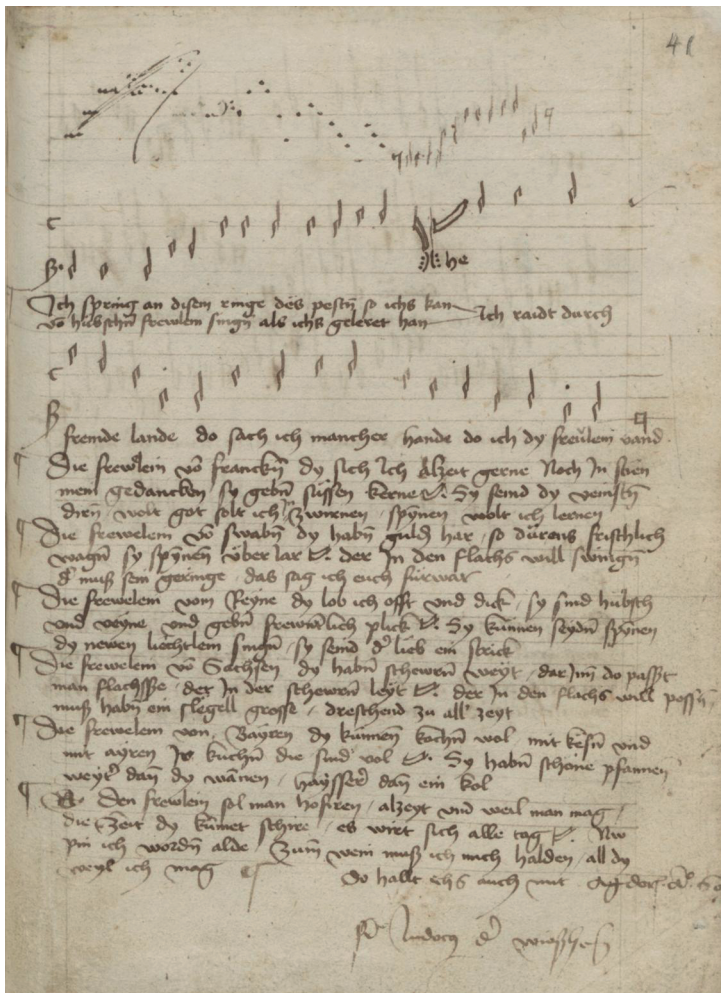 41
he
Ich spring an disem ringe des pestn so ichs kan
vō hubschn frewlein singn als ichs geleret han Ich raidt durch
fremde lande do sach ich mancher hande do ich dy freulein vand
Die frewlein vō franckn dy sich ich alzeit gerne Noch in sten
mein gedancken sy gebn süssen kerne Sy seind dy veinstn
dirn wolt got solt ich zwirnen spynnen wolt ich lernen
Die frewelein vō swabn dy habn guldn har so dürens frischlich
wagn sy spynnen über lar der In den flachs will swingn
muß sein geringe das sag ich euch fürwar
Die frewelein vom Reyne dy lob ich offt vnd dick sy sind hübsch
vnd veyne vnd gebn frewntlich plick Sy künnen seydn spynnen
dy newen liedtlein singn sy seind lieb ein strick
Die frewelein vō Sachsen dy habn schewrn weyt dar Inn do passzt
man flachsse der In der schewrn leyt der In den flachs will possn
muß habn ein slegell grosse dreschend zu all zeyt
Die frewelein von Bayren dy künnen kochn wol mit kesn vnd
mit ayren Ir kuchn die sind vol Sy habn schone pfannen
weytr dan dy wannen haysser dan ein kol
Den frewlein sol man hofiren alzeyt vnd weil man mag
die Zeit dy kumet schire es wirt sich alle tag Nw
pin ich wordn alde Zum wein muß ich mich halden all dy
weyl ich mag